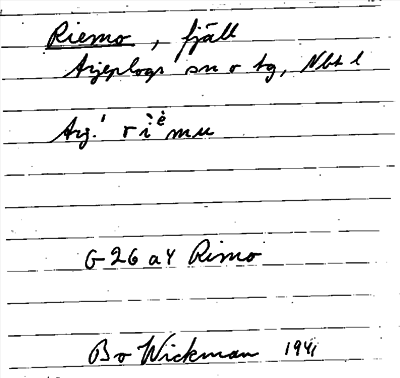 Riemo, fjäll
Arjeplogs sn o tg, Nbt l
Arj.! rìèmu
G 26 a 4 Rimo
Bo Wickman 1941